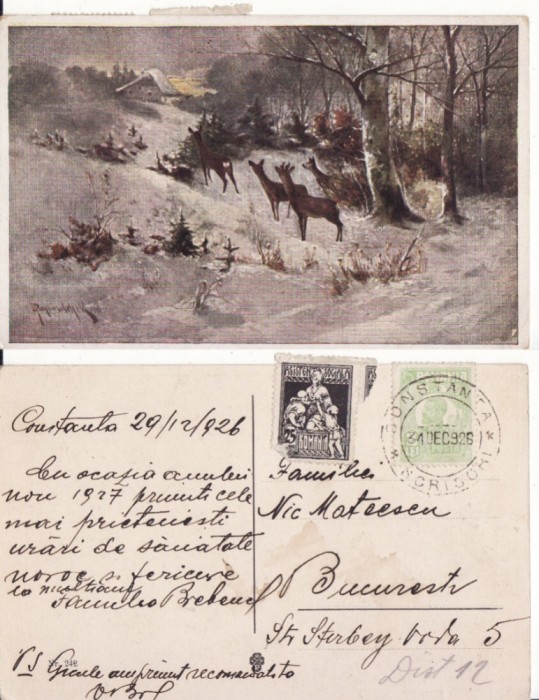 Constanta 29/12/926
Cu ocazia anului
nou 1927 primiti cele
mai prietenesti
urări de sănatate
noroc si fericire
la multi ani
Familia
25
ROMANIA
CONSTANTA
31 DEC 926
SCRISORI
Familiei
Nic Mateescu
Bucuresti
Str Sterbey Voda 5
Dist 12
PS
am primit recomandata